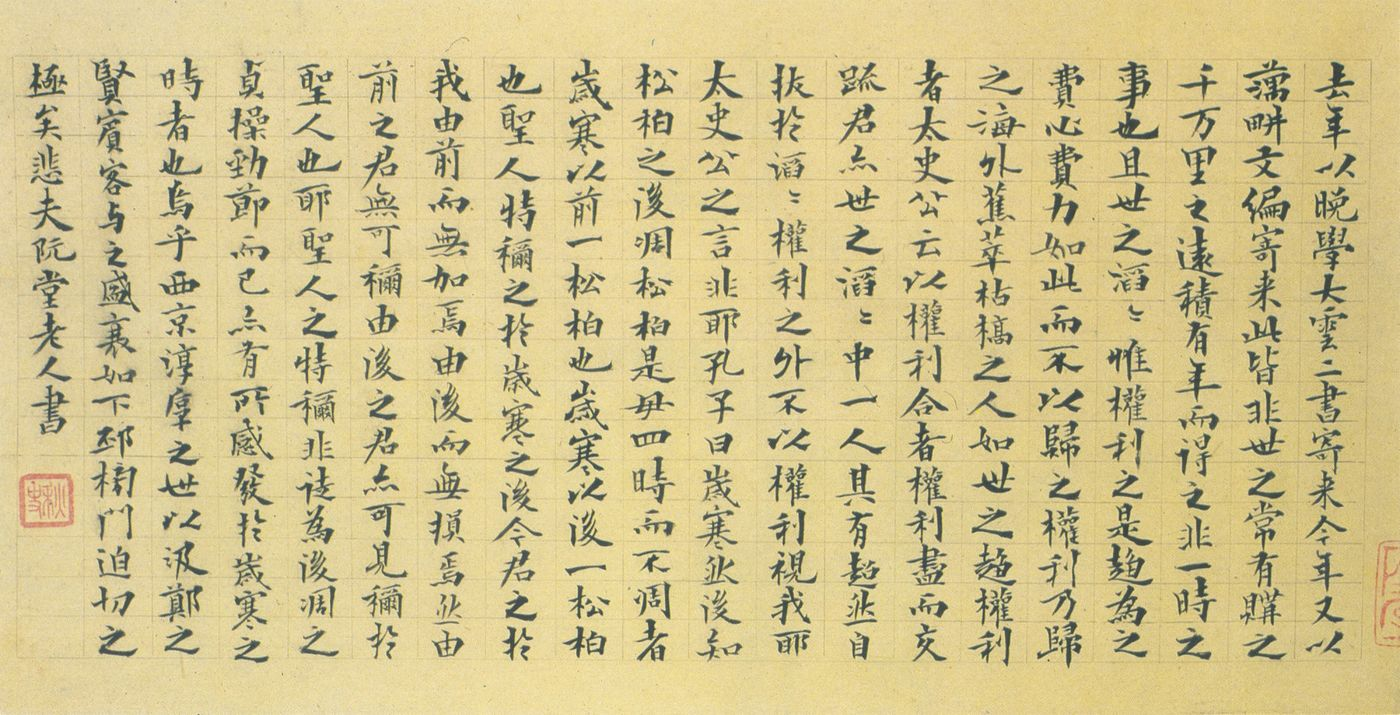 去年以晩學大雲二書寄来今年又以
藕畊文編寄来此皆非世之常有購之
千万里之遠積有年而得之非一時之
事也且世之滔〻惟權利之是趍為之
費心費力如此而不以歸之權利乃歸
之海外蕉萃枯槁之人如世之趍權利
者太史公云以權利合者權利盡而交
踈君亦世之滔〻中一人其有超然自
拔於滔〻權利之外不以權利視我耶
太史公之言非耶孔子曰歲寒然後知
松柏之後凋松柏是毋四時而不凋者
歲寒以前一松柏也歲寒以後一松柏
也聖人特稱之於歲寒之後今君之於
我由前而無加焉由後而無損焉然由
前之君無可稱由後之君亦可見稱於
聖人也耶聖人之特稱非徒為後凋之
貞操勁節而已亦有所感發於歲寒之
時者也烏乎西京淳厚之世以汲鄭之
賢賓客与之盛衰如下邳榜門迫切之
極矣悲夫阮堂老人書
秋史